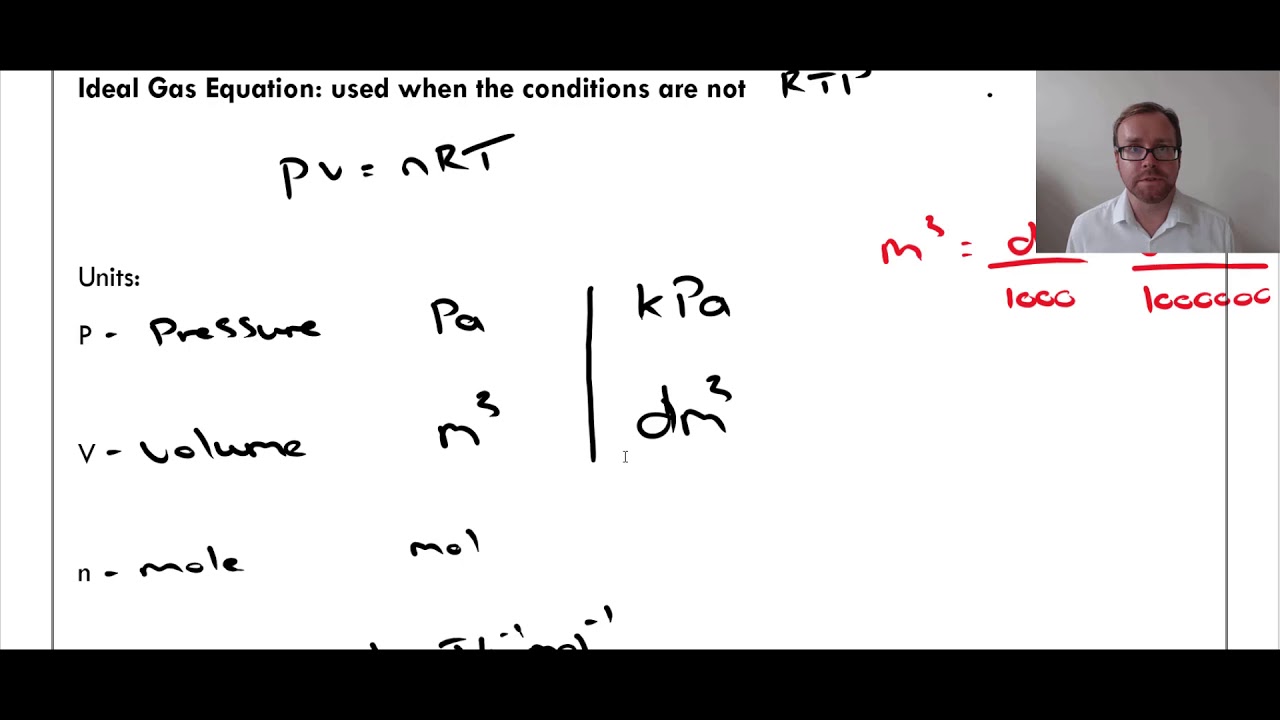 Ideal Gas Equation: used when the conditions are not RTP .
PV = nRT
m³ = d
1000 1000000
Units:
P - Pressure Pa kPa
V - Volume m³ dm³
n - mole mol
mol⁻¹